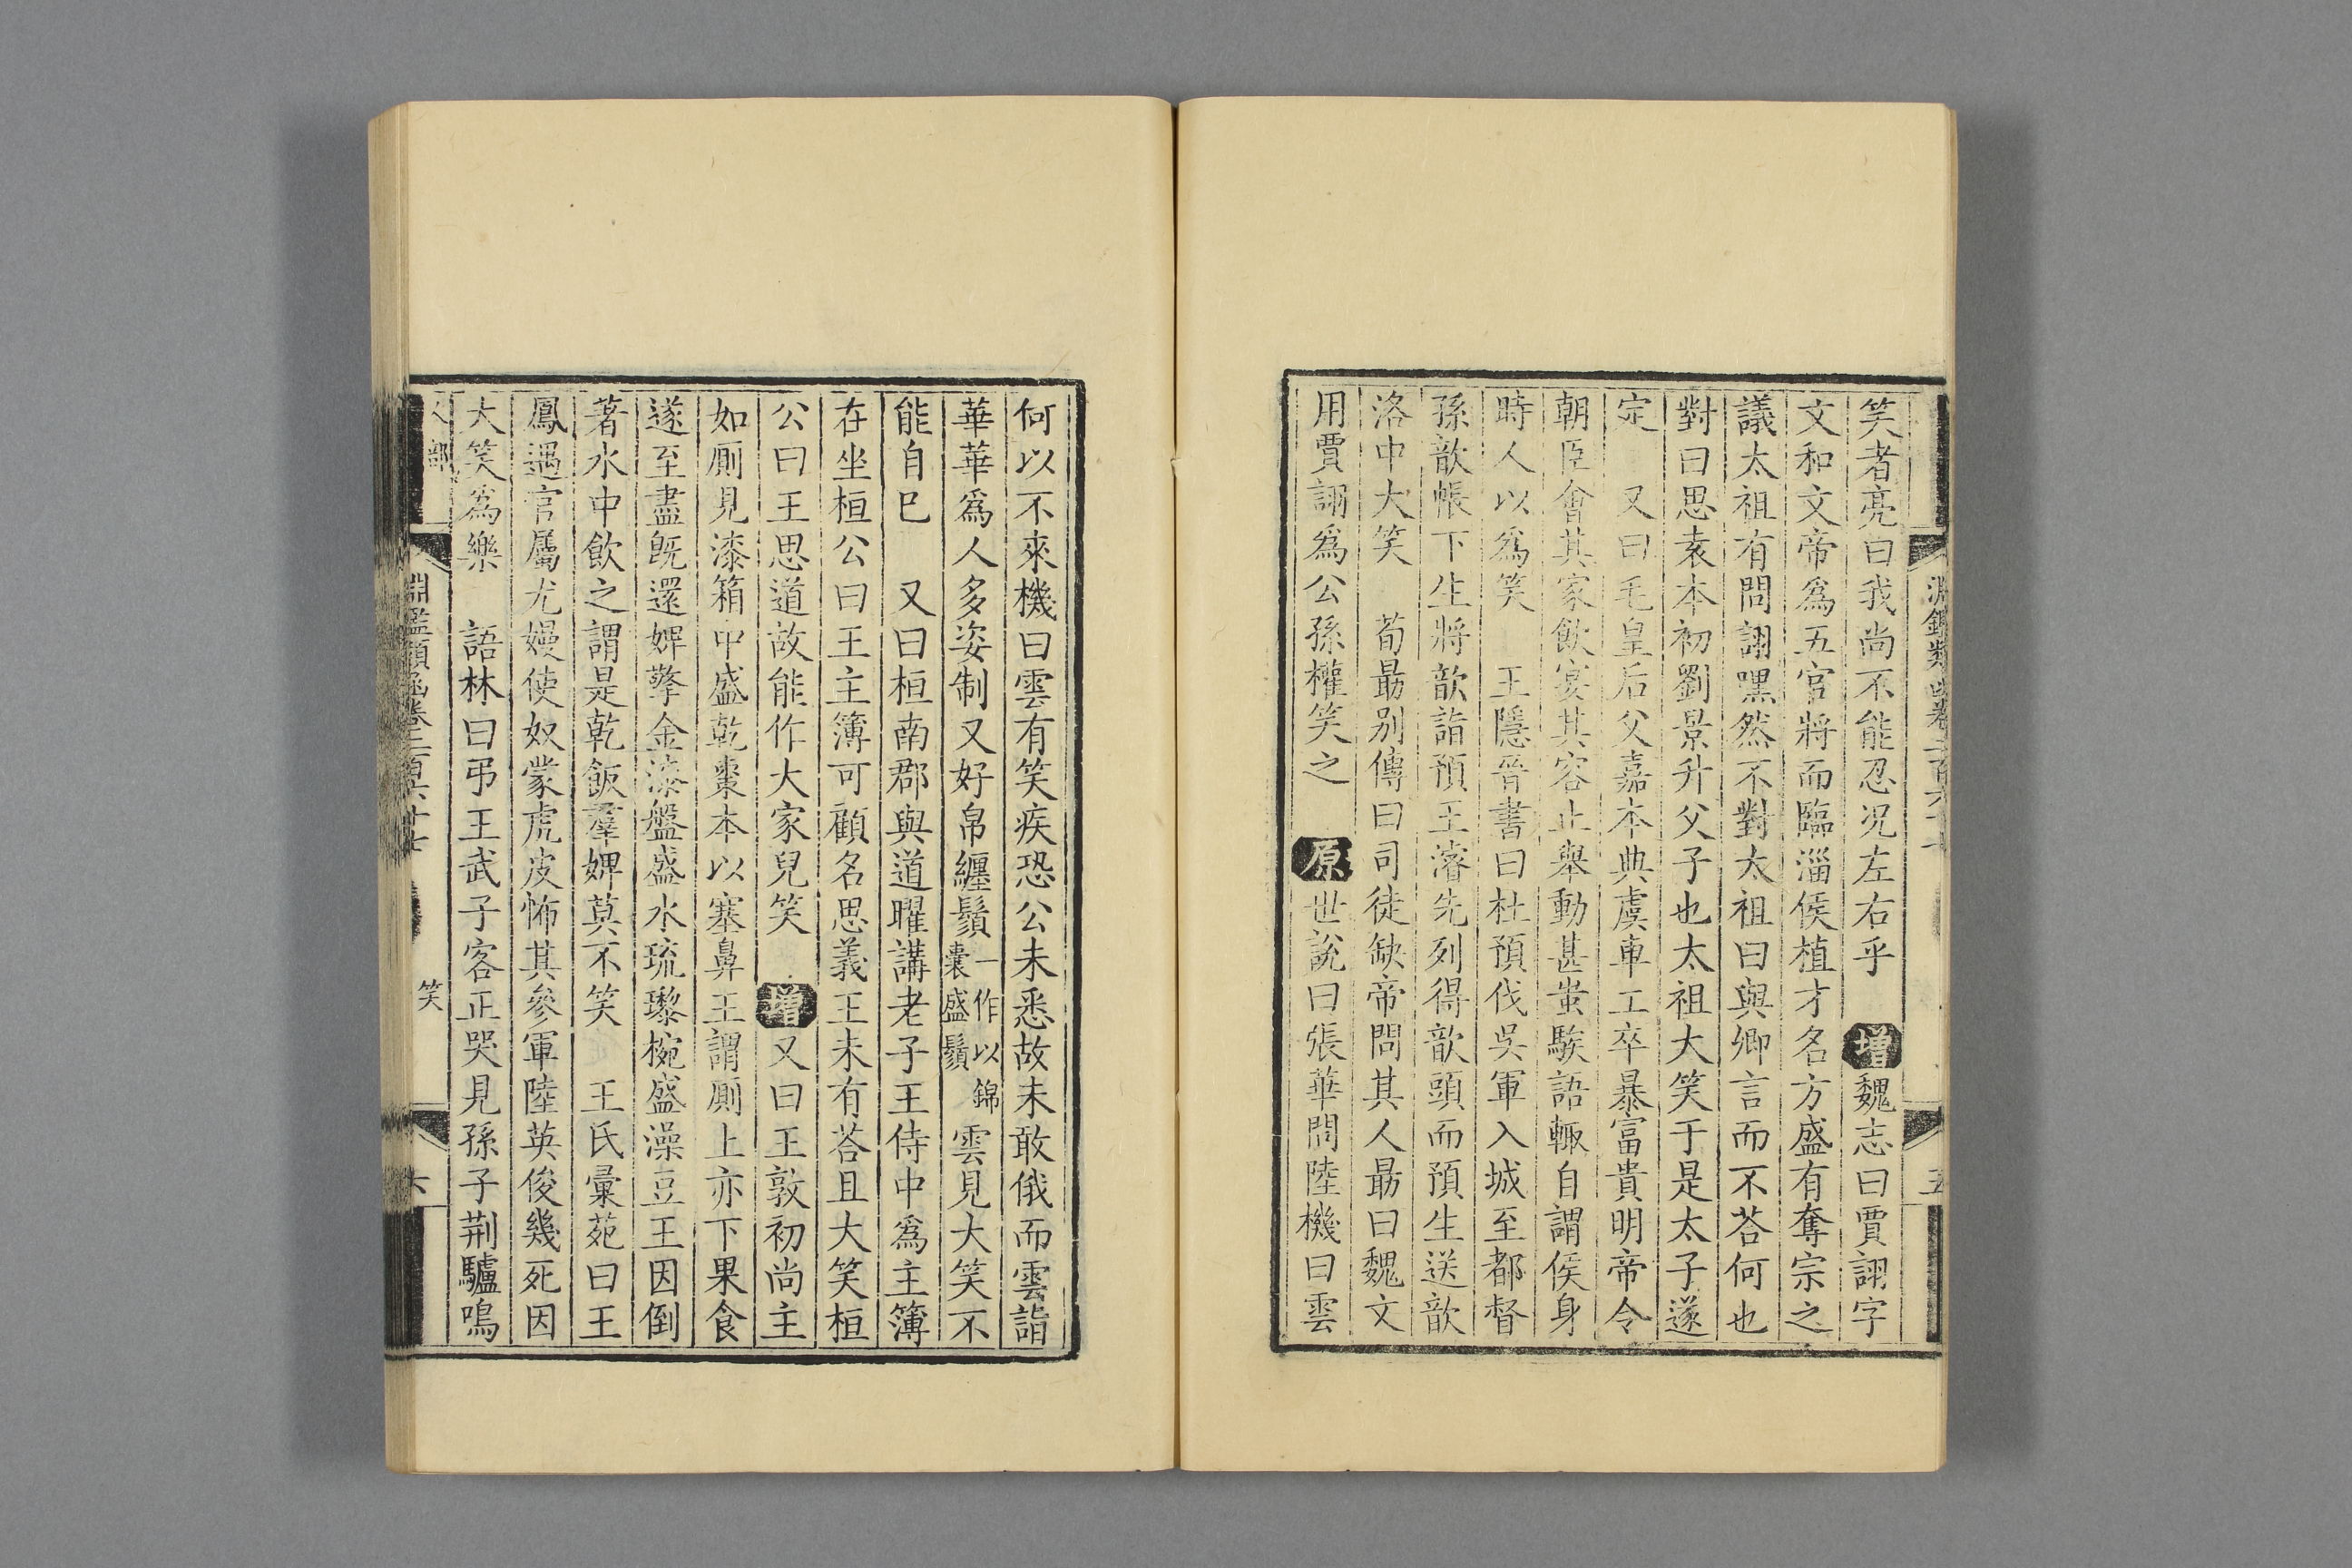 笑者亮曰我尚不能忍况左右乎 增魏志曰賈詡字
文和文帝爲五官將而臨淄侯植才名方盛有奪宗之
議太祖有問詡嘿然不對太祖曰與卿言而不荅何也
對曰思袁本初劉景升父子也太祖大笑于是太子遂
定 又曰毛皇后父嘉本典虞車工卒暴富貴明帝令
朝臣會其家飲宴其容止舉動甚蚩騃語輙自謂侯身
時人以爲笑 王隱晉書曰杜預伐吳軍入城至都督
孫歆帳下生將歆詣預王濬先列得歆頭而預生送歆
洛中大笑 荀朂别傳曰司徒缺帝問其人朂曰魏文
用賈詡爲公孫權笑之 原世說曰張華問陸機曰雲
何以不來機曰雲有笑疾恐公未悉故未敢俄而雲詣
華華爲人多姿制又好帛纏鬚一作以錦囊盛鬚雲見大笑不
能自巳 又曰桓南郡與道曜講老子王侍中爲主簿
在坐桓公曰王主簿可顧名思義王未有荅且大笑桓
公曰王思道故能作大家兒笑 增又曰王敦初尚主
如厠見漆箱中盛乾棗本以塞鼻王謂厠上亦下果食
遂至盡旣還婢擎金漆盤盛水琉瓈椀盛澡豆王因倒
著水中飲之謂是乾飯羣婢莫不笑 王氏彙苑曰王
鳳遇官屬尤嫚使奴蒙虎皮怖其參軍陸英俊幾死因
大笑爲樂 語林曰弔王武子客正哭見孫子荆驢鳴
人部 淵鑑類函卷二百六十七 笑 六